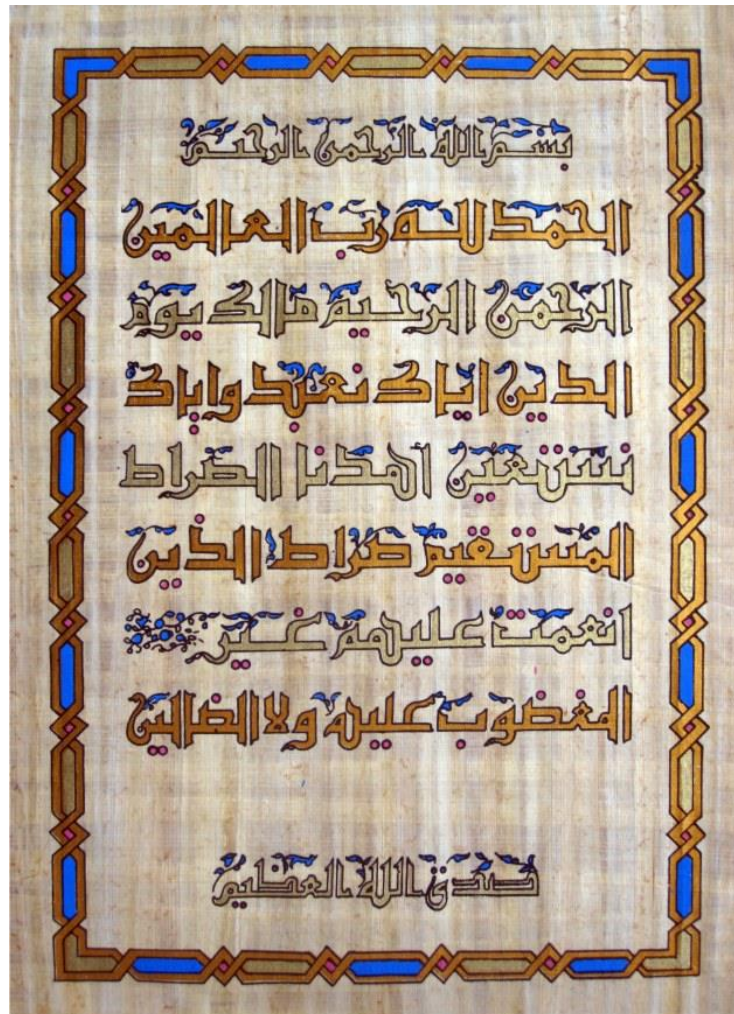 بسم الله الرحمن الرحيم
الحمد لله رب العالمين
الرحمن الرحيم مالك يوم
الدين اياك نعبد واياك
نستعين اهدنا الصراط
المستقيم صراط الذين
انعمت عليهم غير
المغضوب عليهم ولا الضالين
صدق الله العظيم